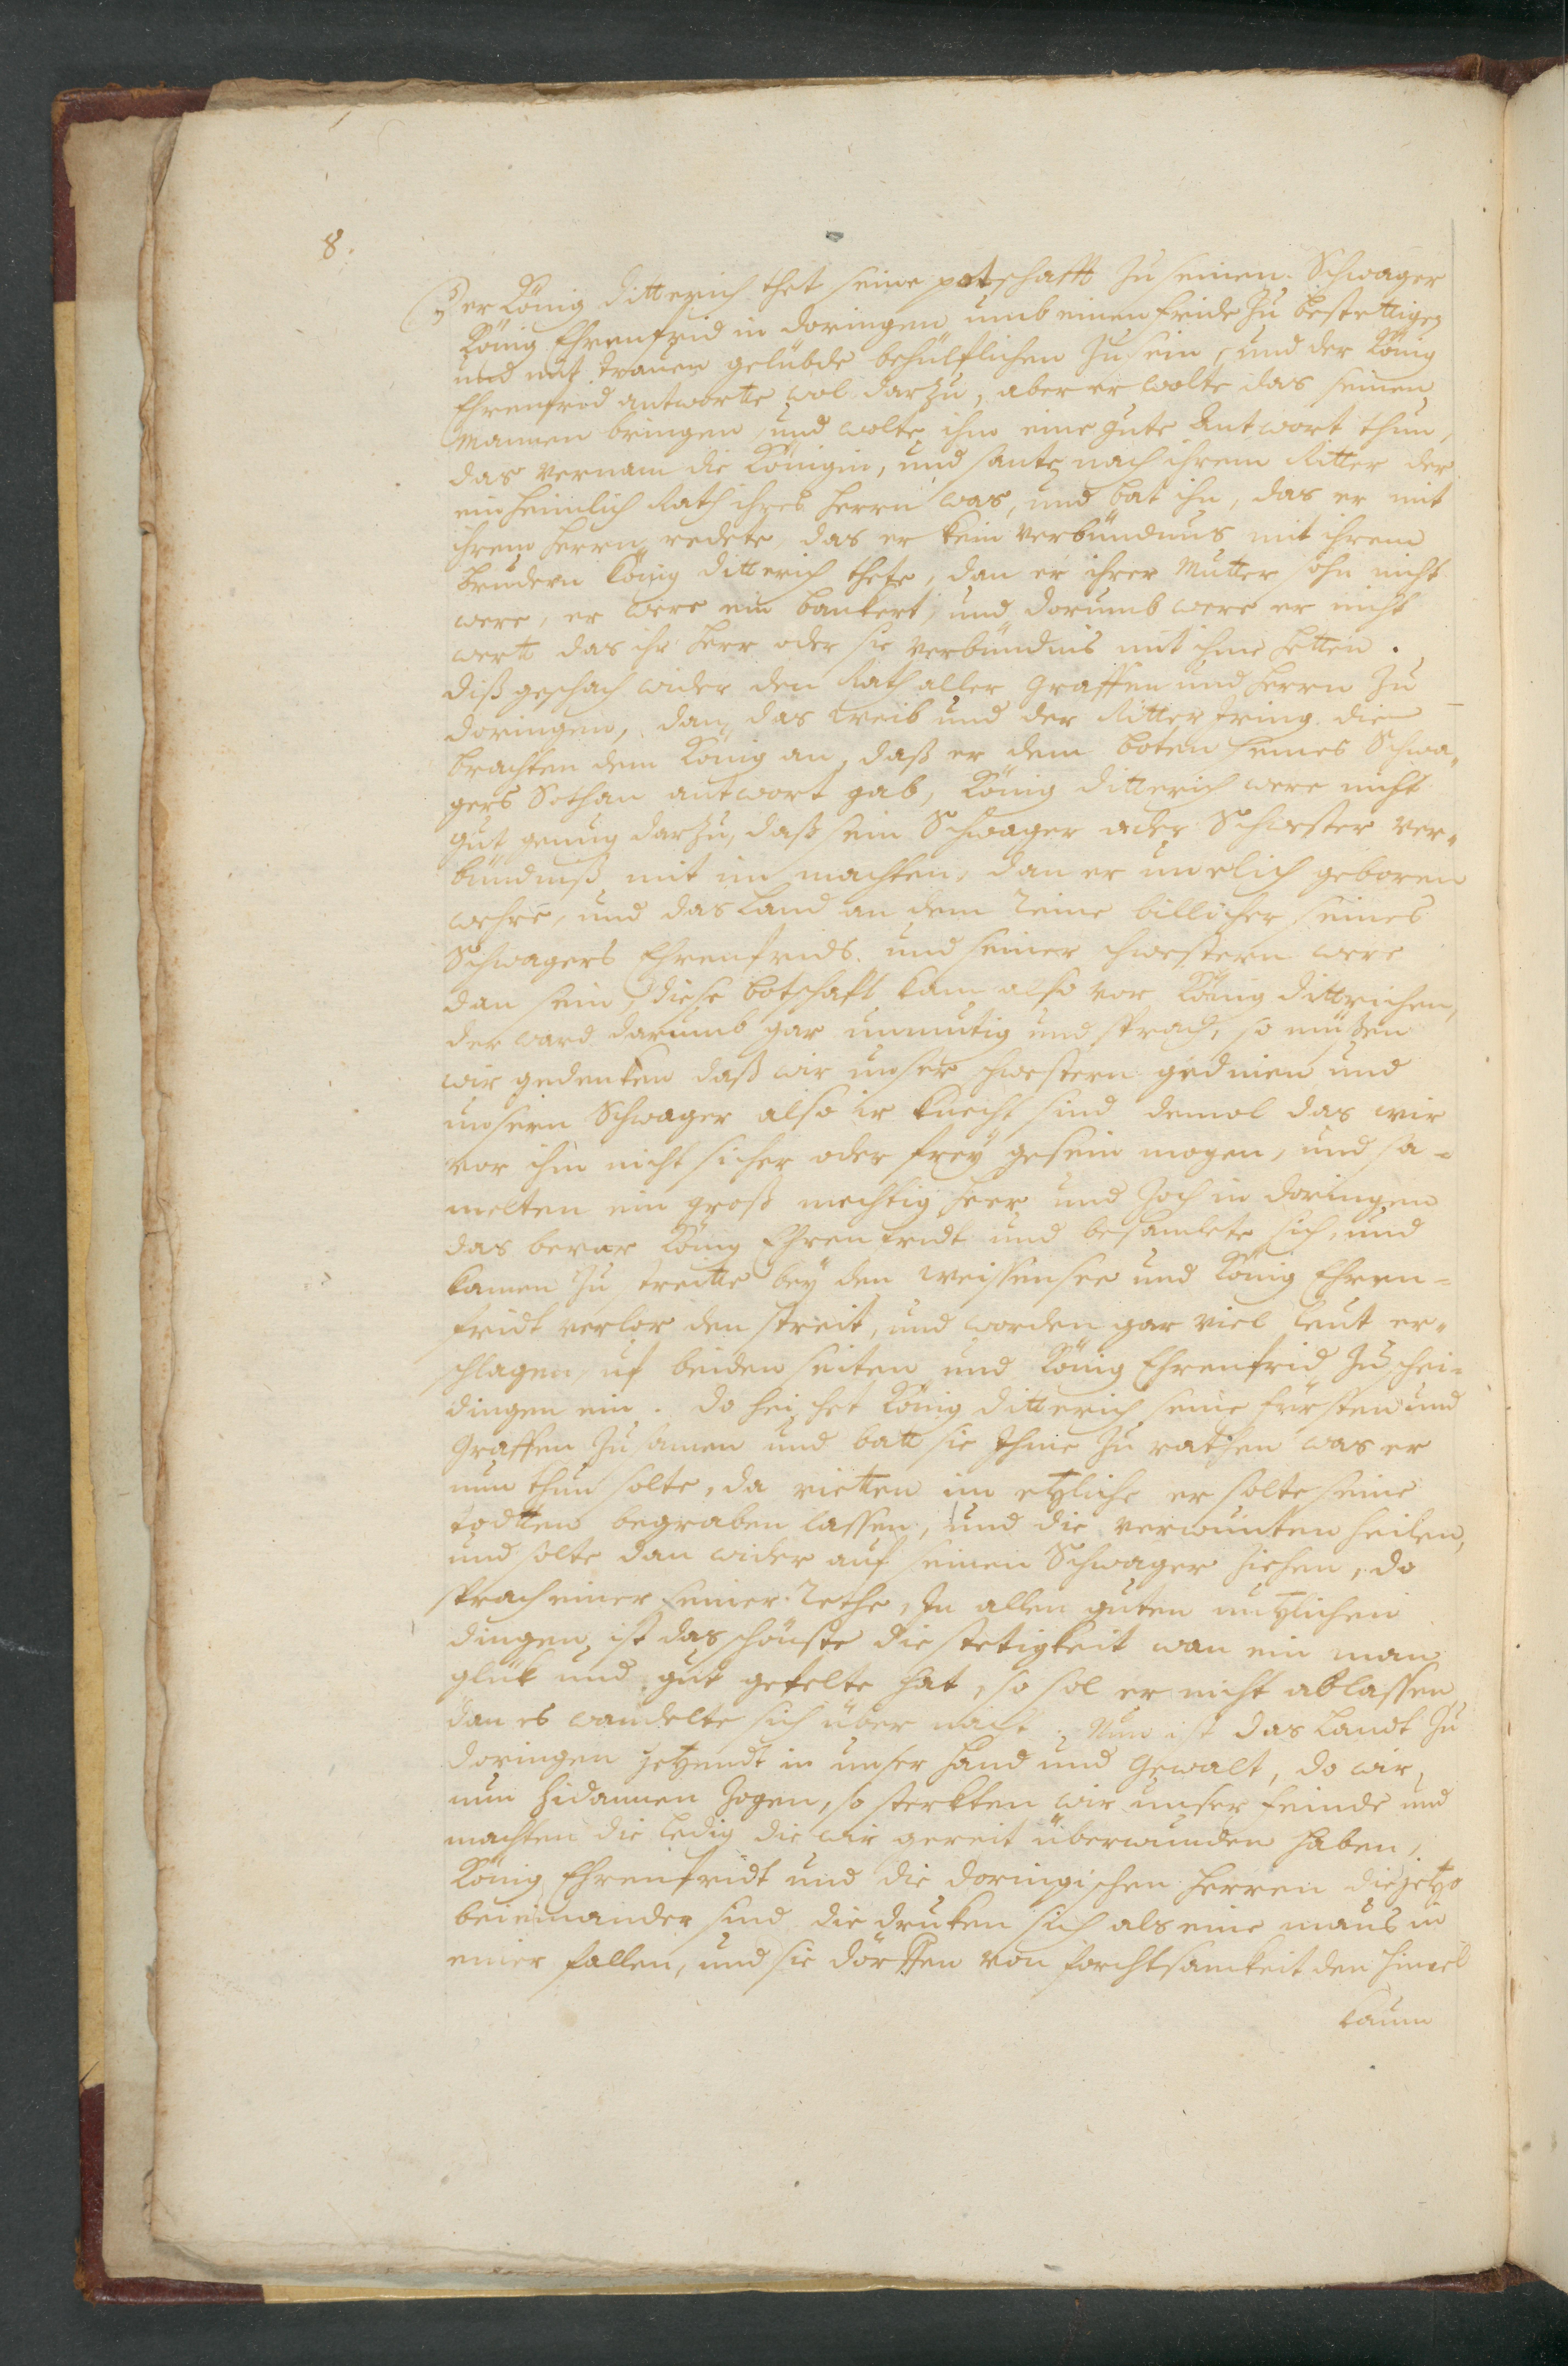 8.
Der König ditterich thet seine potschafft zu seinen Schwager
König Ehrenfrid in doringen umb einen fride zu bestettigen
und mit trauen gelübde behülflichen zu sein, und der König
Ehrenfrid antwortte wol darzu, aber er wolte das seinen
Mannen bringen, und wolte ihm eine gute Antwort thun,
das vernam die Königin, und sante nach ihrem Ritter der
ein heimlich Rath ihres herrn was, und bat ihn, das er mit
ihrem herrn redete, das er kein verbündnus mit ihrem
brudern König ditterich thete, dan er ihrer Mutter sohn nicht
were, er were ein bankert, und dorumb were er nicht
wertt das ihr herr oder sie verbündnis mit ihme hetten.
diß geschach wider den Rath aller Graffen und herrn zu
doringen, dan das weib und der Ritter Iring die
brachten dem König an, daß er dem boten seines Schwa„
gers Sothan antwort gab, König ditterich were nicht
gut genug darzu, daß sein Schwager oder Schwester ver„
bündniß mit im machten, dan er unelich geboren
wehre, und das Land an dem Reine billicher seines
Schwagers Ehrenfrids und seiner schwestern were
dan sein, diese botschaft kam also vor König dittrichen,
der ward darumb gar unmutig und sprach, so müßen
wir gedenken daß wir unser schwestern gedinen und
unsern Schwager also ir knecht sind demol das wir
vor ihm nicht sicher oder frey gesein mogen, und sa=
melten ein groß mechtig heer und zoch in doringen
das bevar König Ehrenfridt und besamlete sich, und
kamen zu streitte bey den weissensee und König Ehren=
fridt verlor den streit, und worden gar viel leut er„
schlagen uf beiden seiten und König Ehrenfrid zu schei=
dingen ein. do heischet König ditterich seine fürsten und
Graffen zusamen und batt sie Ihme zu rathen was er
nun thun solte, da rietten im etzliche er solte seine
todtten begraben lassen, und die verwunten heilen,
und solte dan wider auf seinen Schwager ziehen, do
sprach einer seiner Rethe, In allen guten nutzlichen
dingen ist das schönste die stetigkeit wan ein man
glük und gut gefelte hat, so sol er nicht ablassen
dan es wandelte sich über nacht. Nun ist das Landt zu
doringen jetzundt in unser hand und Gewalt, do wir
nun hidannen zogen, so sterkten wir unser feinde und
machten die ledig die wir gereit überwunden haben,
König Ehrenfridt und die doringischen herren die jetzo
beieinander sind die druken sich als eine maus in
einer fallen, und sie dörffen von forchtsamkeit den himel
kaum